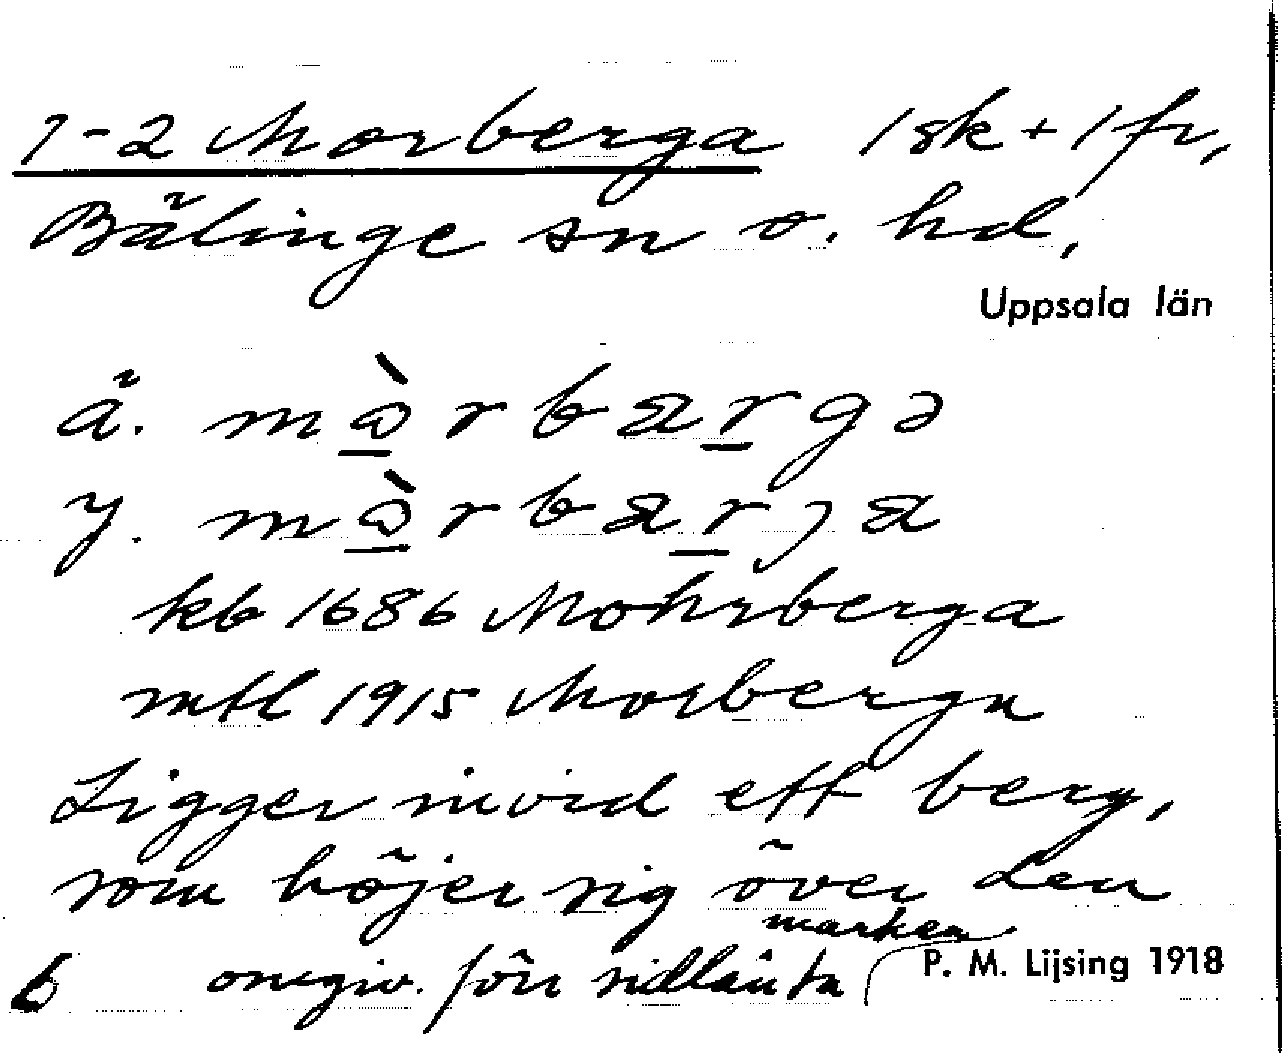 1-2 Morberga 1 sk + 1 fr,
Bälinge sn o. hd,
Uppsala län
ä. mɷ̀rbargə
y. mɷ̀rbarja
kb 1686 Mohrberga
mtl 1915 Morberga
Ligger invid ett berg,
som höjer sig över den
marken
omgiv. förr sidlänta
P. M. Lijsing 1918
b